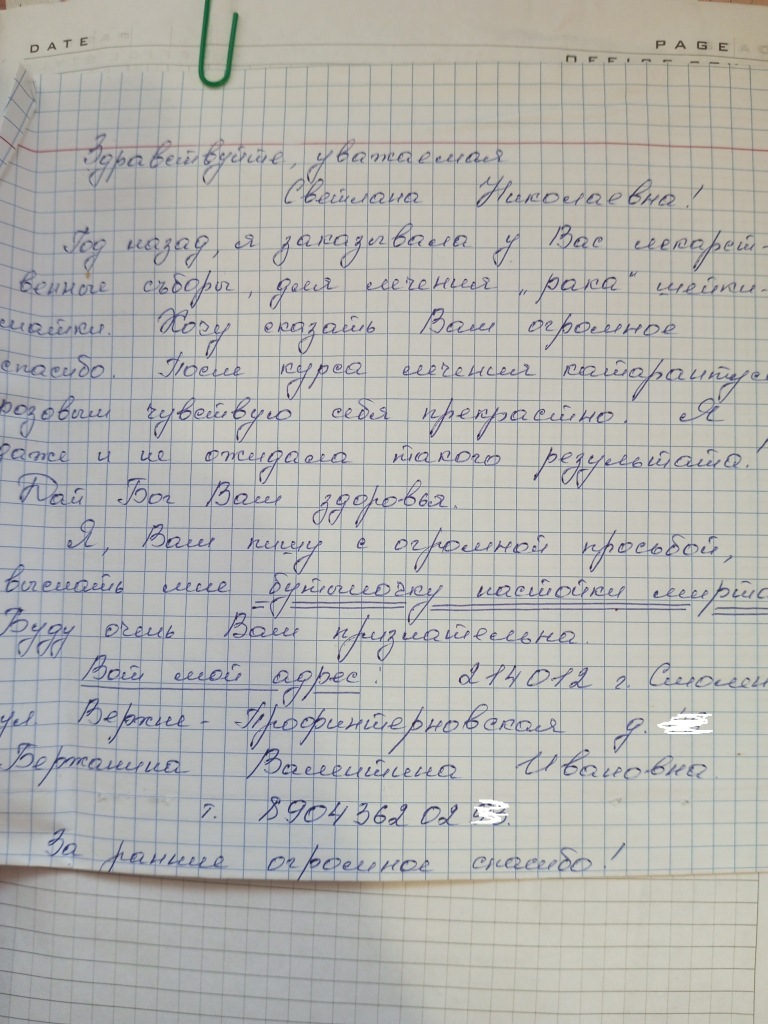 DATE
PAGE
Здравствуйте, уважаемая
Светлана Николаевна!
Год назад, я заказывала у Вас лекарст-
венные съборы, для лечения „рака" шейки-
матки. Хочу сказать Вам огромное
спасибо. После курса лечения катарантус
розовым чувствую себя прекрастно. Я
даже и не ожидала такого результата!
Дай Бог Вам здоровья.
Я, Вам пишу с огромной просьбой,
выслать мне бутылочку настойки мирта
Буду очень Вам признательна.
Вот мой адрес: 214012 г. Смолен
ул Верхне-Профинтерновская д.
Бержанина Валентина Ивановна
т. 8904 362 02
За ранние огромное спасибо!